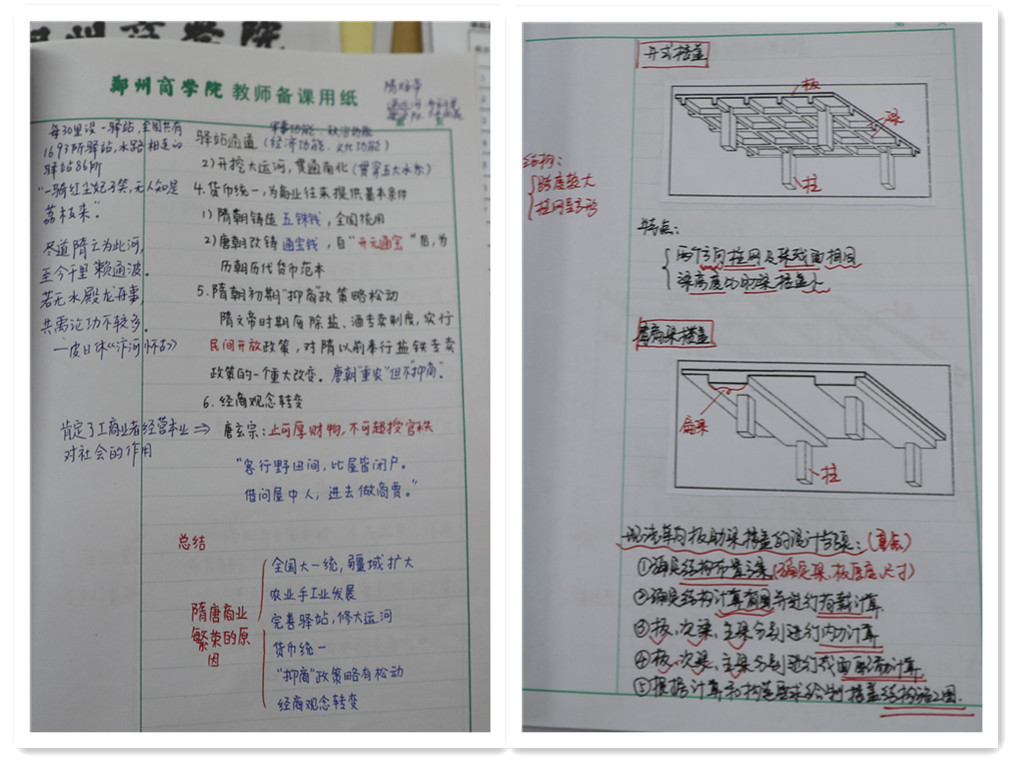 郑州商学院 教师备课用纸
每30里设一驿站,全国共有
1693所驿站,水路相连的
驿站86所
"一骑红尘妃子笑,无人知是
荔枝来"。
尽道隋亡为此河,
至今千里赖通波。
若无水殿龙舟事,
共禹论功不较多。
—皮日休《汴河怀古》
肯定了工商业者经营本业⇒
对社会的作用
军事功能、政治功能
驿站通道(经济功能、文化功能)
2)开挖大运河,贯通南北(贯穿五大水系)
4.货币统一,为商业往来提供基本条件
1)隋朝铸造五铢钱,全国统用
2)唐朝改铸通宝钱,自"开元通宝"后,为
历朝历代货币范本
5.隋朝初期"抑商"政策略松动
隋文帝时期废除盐、酒专卖制度,实行
民间开放政策,对隋以前奉行盐铁专卖
政策的一个重大改变。唐朝"重农"但不"抑商"。
6.经商观念转变
唐玄宗:止可厚财物,不可超授官秩
"客行野田间,比屋皆闭户。
借问屋中人,进去做商贾。"
总结
隋唐商业
繁荣的原
因
全国大一统,疆域扩大
农业手工业发展
完善驿站,修大运河
货币统一
"抑商"政策略有松动
经商观念转变
井式楼盖
板
梁
柱
结构:
跨度较大
柱网呈方形
特点:
两个方向柱网及梁截面相同
扁梁
柱
现浇单向板肋梁楼盖的设计步骤:(重点)
①确定结构布置方案(确定梁、板厚度、尺寸)
②确定结构计算简图并进行荷载计算
③板、次梁、主梁分别进行内力计算
④板、次梁、主梁分别进行截面配筋计算
⑤根据计算和构造要求绘制楼盖结构施工图.